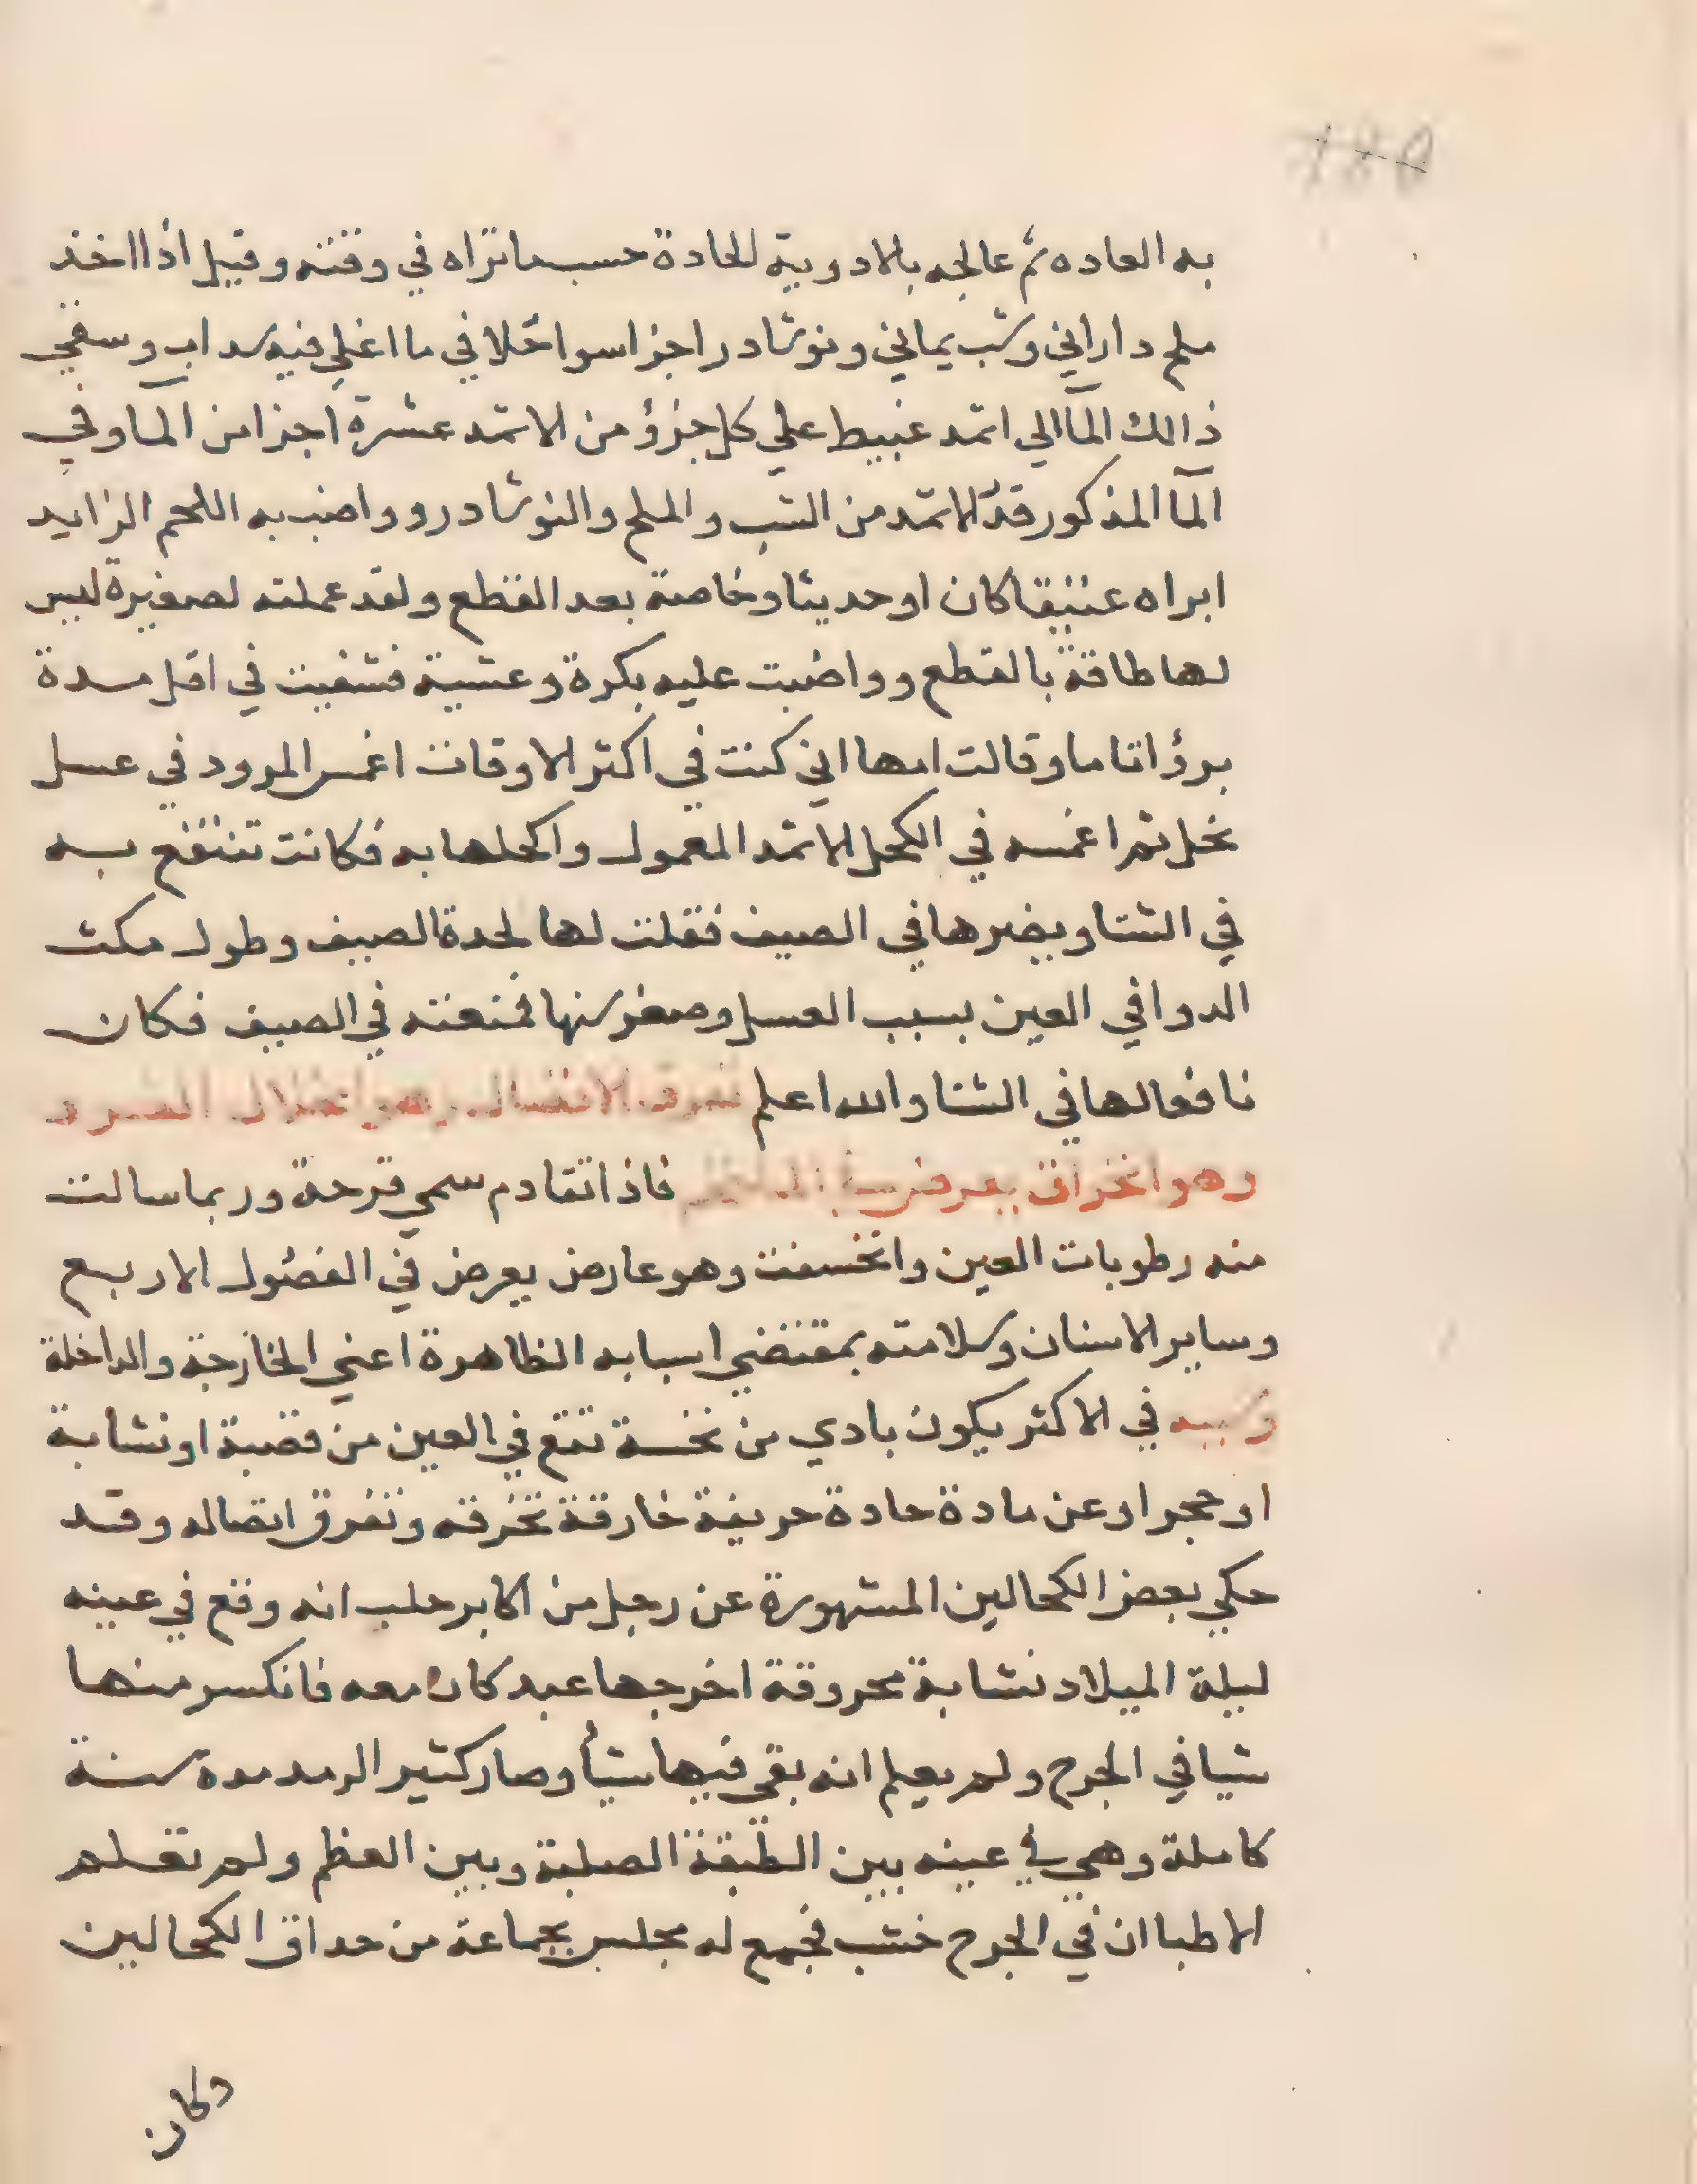 به العاده ثم عالجه بالادوية للحادة حسبما تراه في وقته وقيل اذا اخذ
ملح داراني وشب يماني ونوشادر اجزا سوا حُلا في ما اغلي فيه سداب وسقي
ذالك المآ الي اثمد غبيط علي كل جزؤ من الاثمد عشرة اجزا من المآ وفي
المآ المذكور قدّ الاثمد من الشب والملح والنوشادر وواضب به اللحم الزايد
ابراه عتيقا كان او حديثا وخاصة بعد القطع ولقد عملته لصغيرة ليس
لها طاقة بالقطع وواضبت عليه بكرة وعشية فشفيت في اقل مدة
برؤا تاما وقالت امها اني كنت في اكثر الاوقات اغمس المرود في عسل
نحل ثم اغمسه في الكحل الاثمد المعمول واكحلها به فكانت تنتفع به
في الشتا ويضرها في الصيف فقلت لها لحدة الصيف وطول مكث
الدوا في العين بسبب العسل وصغر سنها فمنعته في الصيف فكان
نافعا لها في الشتا والله اعلم تفرق الاتصال وهو انحلال الفرد
وهو انخراق يعرض فاذا تقادم سمي قرحة وربما سالت
منه رطوبات العين وانخسفت وهو عارض يعرض في الفصول الاربع
وساير الاسنان وسلامته بمقتضي اسبابه الظاهرة اعني الخارجة والداخلة
وسببه في الاكثر يكون بادي من نخسة تقع في العين من قصبة او نشابة
او حجر او عن مادة حادة حريفة خارقة تخرقه وتفرق اتصاله وقد
حكي بعض الكحالين المشهورة عن رجل من اكابر حلب انه وقع في عينه
ليلة الميلاد نشابة محروقة اخرجها عبد كان معه فانكسر منها
شيا في الجرح ولم يعلم انه بقي فيها شيأ وصار كثير الرمد مدة سنة
كاملة وهي في عينه بين الطبقة الصلبة وبين العظم ولم تعلم
الاطبا ان في الجرح خشب فجمع له مجلس بجماعة من حداق الكحالين
وكان